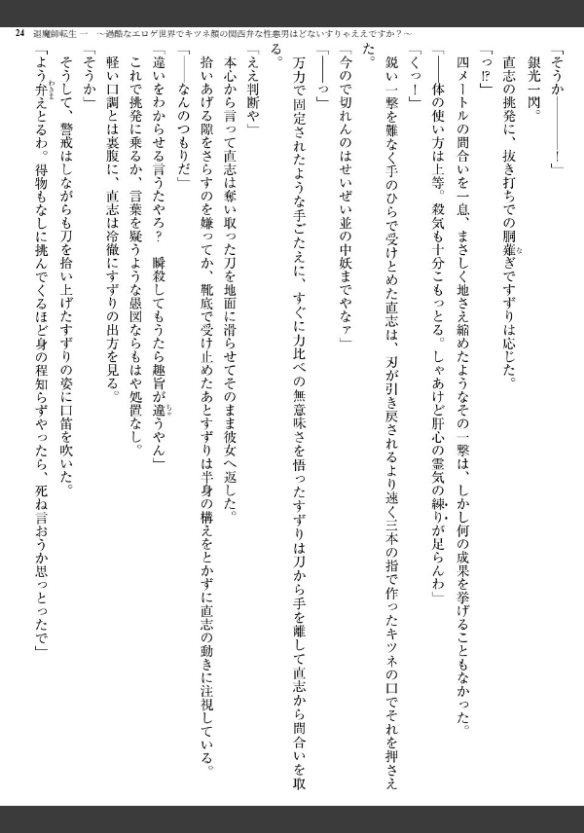 24 退魔師転生 一 ～過酷なエロゲ世界でキツネ顔の関西弁な性悪男はどないすりゃええですか？～
「そうか――――！」
銀光一閃。
直志の挑発に、抜き打ちでの胴薙な ぎですずりは応じた。
「っ!?」
四メートルの間合いを一息、まさしく地さえ縮めたようなその一撃は、しかし何の成果を挙げることもなかった。
「――体の使い方は上等。殺気も十分こもっとる。しゃあけど肝心の霊気の練りが足らんわ」
「くっ！」
鋭い一撃を難なく手のひらで受けとめた直志は、刃が引き戻されるより速く三本の指で作ったキツネの口でそれを押さえ
た。
「今ので切れんのはせいぜい並の中妖までやなァ」
「――っ」
万力で固定されたような手ごたえに、すぐに力比べの無意味さを悟ったすずりは刀から手を離して直志から間合いを取
る。
「ええ判断や」
本心から言って直志は奪い取った刀を地面に滑らせてそのまま彼女へ返した。
拾いあげる隙をさらすのを嫌ってか、靴底で受け止めたあとすずりは半身の構えをとかずに直志の動きに注視している。
「――なんのつもりだ」
「違いをわからせる言うたやろ？　瞬殺してもうたら趣旨が違ちゃ うやん」
これで挑発に乗るか、言葉を疑うような愚図ならもはや処置なし。
軽い口調とは裏腹に、直志は冷徹にすずりの出方を見る。
「そうか」
そうして、警戒はしながらも刀を拾い上げたすずりの姿に口笛を吹いた。
「よう弁わきま えとるわ。得物もなしに挑んでくるほど身の程知らずやったら、死ね言おうか思っとったで」